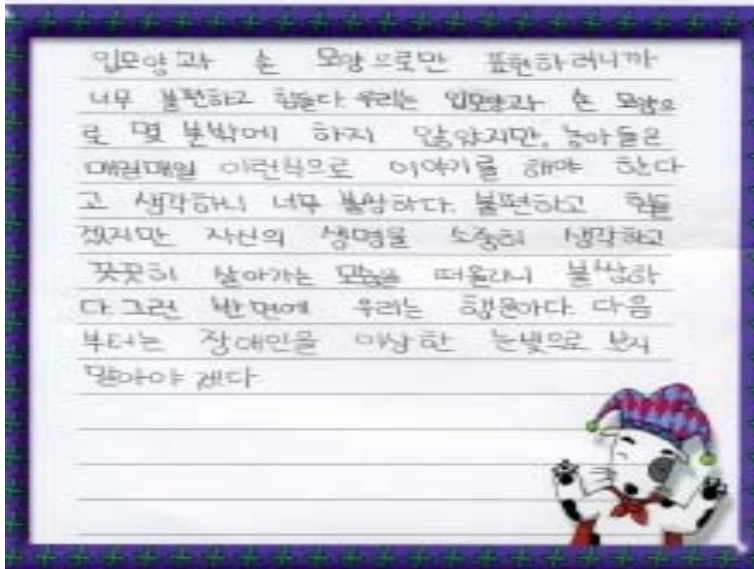 입모양과 손 모양으로만 표현하려니까
너무 불편하고 힘들다. 우리는 입모양과 손 모양으
로 몇 분밖에 하지 않았지만, 농아들은
매일매일 이런식으로 이야기를 해야 한다
고 생각하니 너무 불쌍하다. 불편하고 힘들
겠지만 자신의 생명을 소중히 생각하고
꿋꿋히 살아가는 모습을 떠올리니 불쌍하
다 그런 반면에 우리는 행운아다. 다음
부터는 장애인을 이상한 눈빛으로 보지
말아야 겠다